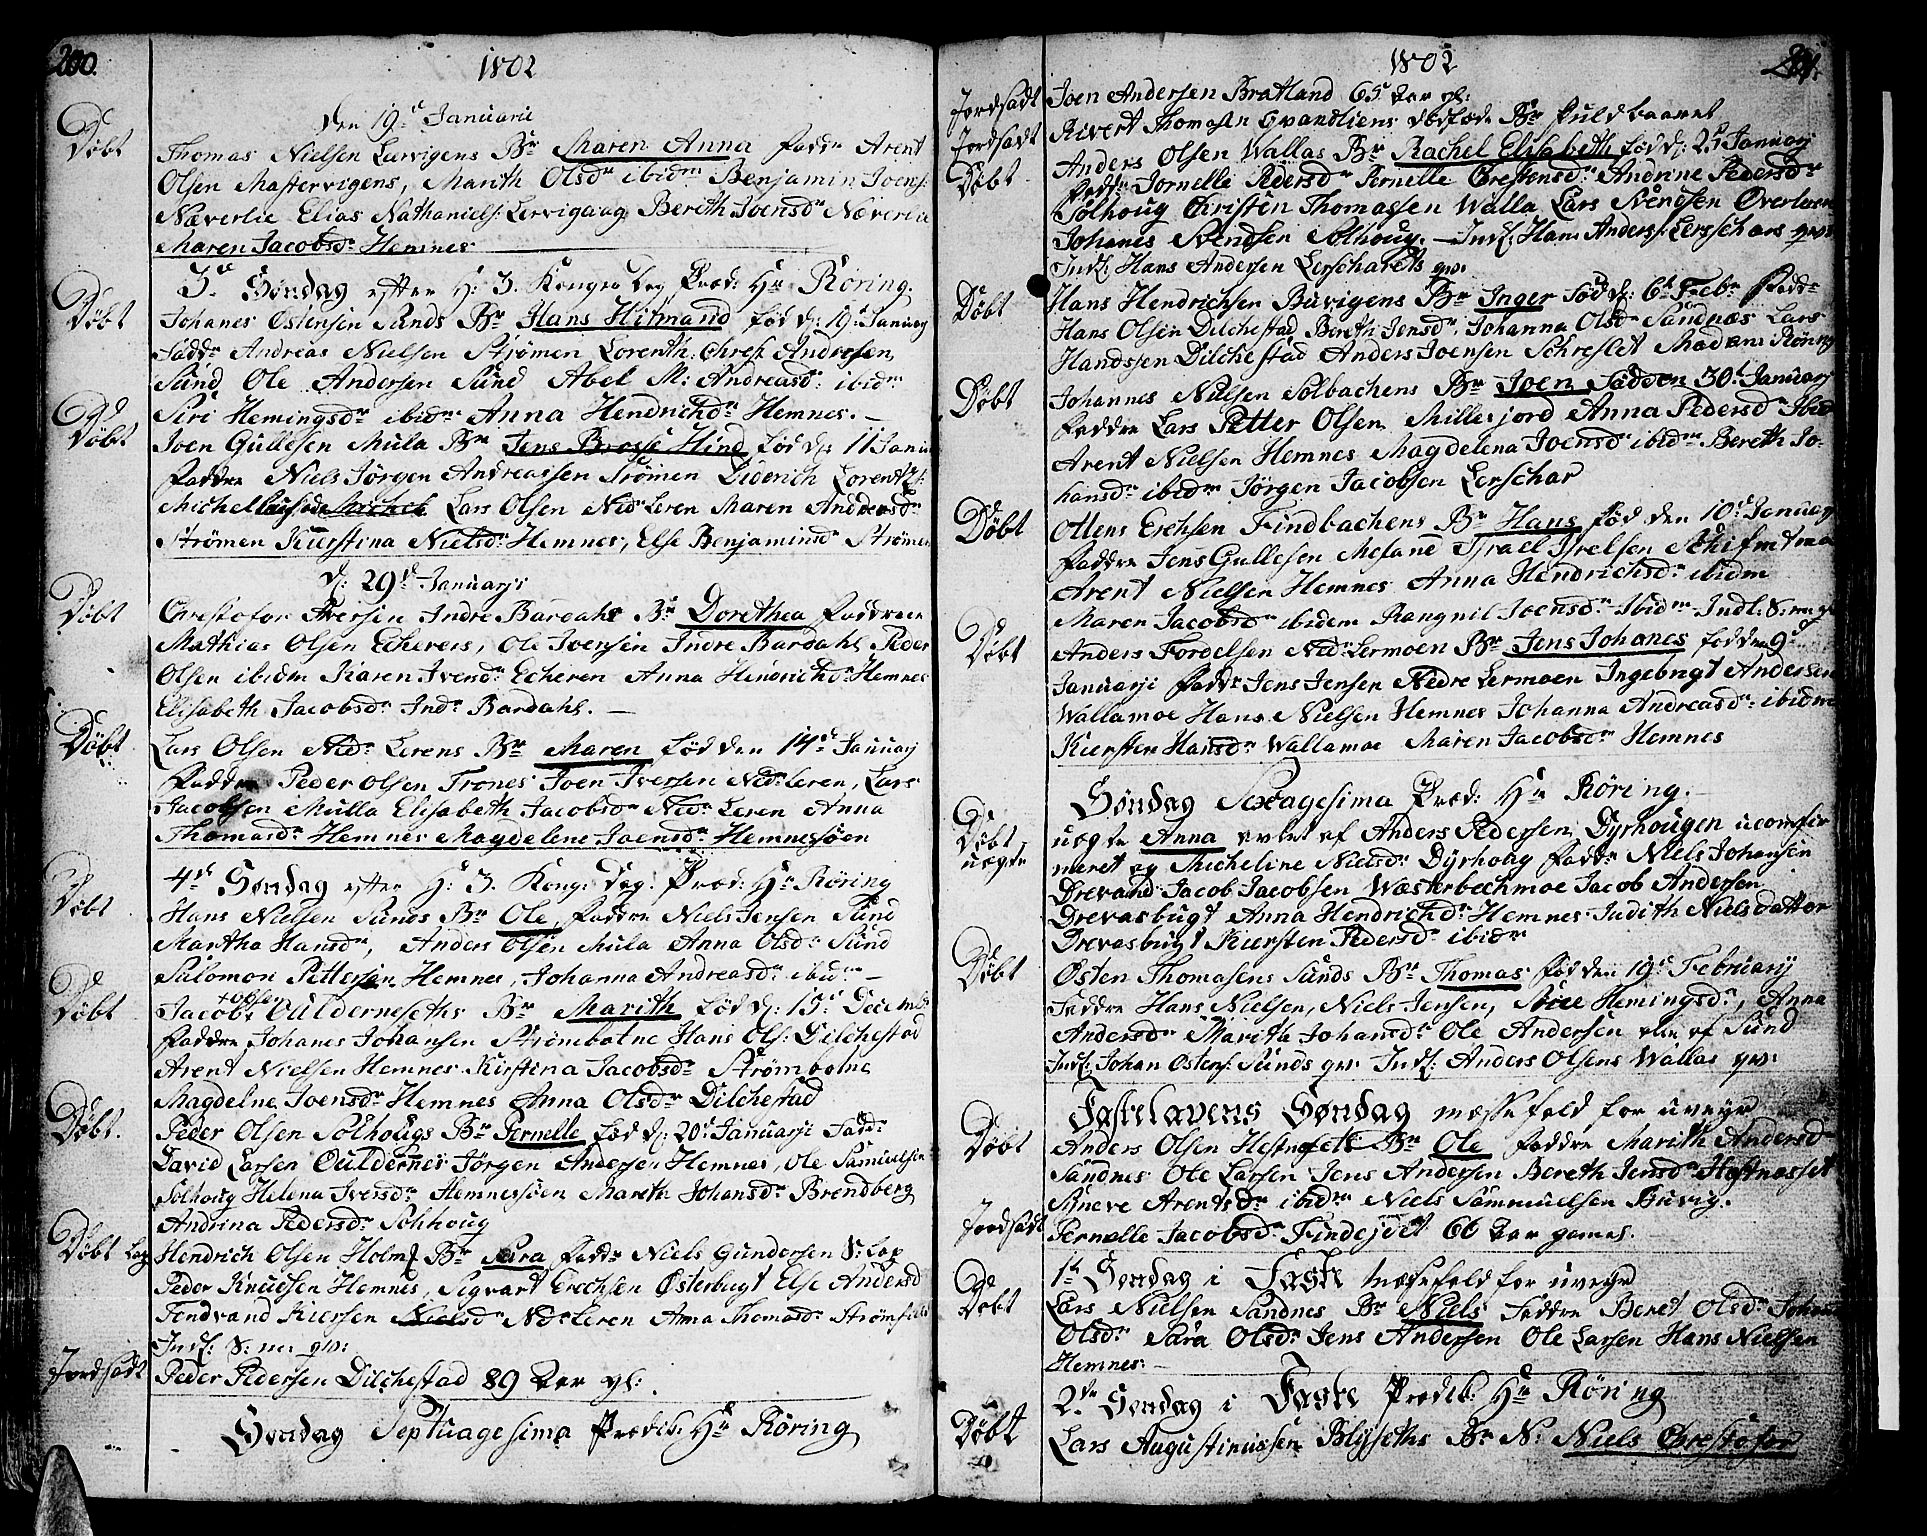 200.
1802
Den 19d Januarii
Døbt
Thomas Nielsen Lervigens Br Maren Anna Faddr Arent
Olsen Mastervigens, Marith Olsdr ibidm Benjamin Joens:
Næverlie Elias Nathaniels: Lervigaug Berith Joensdr Næverlie
Maren Jacobsdr Hemnes
3d Søndag efter H: 3. Konger Dag Præd: Hr Röring.
Døbt
Johanes Østensen Sunds Br Hans Hitmand fød d: 19d January
Faddr Andreas Nielsen Strømen Lorenth: Chrest Andresen
Sund Ole Andersen Sund Abel M: Andreasdr ibidm
Siri Hemingsdr ibidm Anna Hendrichdr Hemnes.
Døbt
Joen Gullesen Mula Br Jens Brosse Hind fød d: 11 Janu
Faddre Niels Jörgen Andreassen Strömen Diderich Lorentz:
Michel Lars Olsen Nedr Leren Maren Andreasdr
Strømen Kierstina Nielsdr Hemnes, Else Benjaminsdr Strømen
d: 29d Januarji
Døbt
Chrestofor Iversen Indre Bardahl Br Dorethea Faddrene
Mathias Olsen Echerens, Ole Iversen Indre Bardahl Peder
Olsen ibidm Karen Iversdr Echeren Anna Hendrichdr Hemnes
Elisabeth Jacobsdr Indr Bardahl.
Døbt
Lars Olsen Nedr Lerens Br Maren fød den 14d Januarj
Faddre Peder Olsen Trones Joen Iversen Nedr Leren, Lars
Jacobsen Mulla Elisabeth Jacobsdr Nedr Leren Anna
Thomasdr Hemnes Magdelene Joensdr Hemnessöen
4d Søndag efter H: 3. Kong: Dag: Præd: Hr Röring
Døbt
Hans Nielsen Sunds Br Ole, Faddre Niels Jensen Sund
Martha Hansdr, Anders Olsen Mula Anna Olsdr Sund
Salomon Pettersen Hemnes, Johanna Andreasdr ibidm
Døbt
Jacob Ouldernesets Br Marith fød d: 13d Decemb
Faddre Johanes Johansen Strömbotne Hans Ols: Dilchestad
Arent Nielsen Hemnes Kirstina Jacobsdr Strömbotne
Magdelne Joensdr Hemnes Anna Olsdr Dilchestad
Døbt.
Peder Olsen Solhougs Br Pernelle fød d: 20d Januarji Faddr
David Larsen Ouldernes Jörgen Andersen Hemnes, Ole Samuelsen
Solhoug Helena Iversdr Hemnessöen Marith Johansdr Brendberg
Andrina Pedersdr Solhoug
Døbt Lap
Hendrich Olsen Holms Br Sara Faddr Niels Gundersen S: Lap
Peder Knudsen Hemnes, Sigvart Erechsen Østerbugt Else Andersd
Tendvand Kiersten Nielsdr Nedr Leren Anna Thomasdr Strömfell
Indl: S: m: qv:
Jordsadt
Peder Pedersen Dilchestad 89 Aar gl:
Søndag Septuagesima Prædik: Hr Röring
1802
201.
Jordsadt
Joen Andersen Bratland 65 Aar gl:
Jordsadt
Rivert Thomasen Grandliens dødføde Br fuldbaaret
Døbt
Anders Olsen Wallas Br Rachel Elisabeth fød d: 25d Januarj
Faddr Jornelle Pedersdr Pernelle Chrestensdr Andrine Pedersdr
Solhoug Christen Thomassen Walla Lars Svendsen Overleren
Johanes Svendsen Solhoug. Indl: Hans Anders: Lerschars qv:
Indl: Hans Andersen Lerscharets qv:
Døbt
Hans Hendrichsen Buvigens Br Inger fød d: 6d Febr Faddr
Hans Olsen Dilchestad Birith Jensdr, Johanna Olsdr Sandnæs Lars
Handssen Dilchestad Anders Joensen Schreslet Madam Röring
Døbt
Johannes Nielsen Solbachens Br Joen Fød den 30d Januarj
Faddre Lars Petter Olsen Millerjord Anna Pedersdr Ibid
Arent Nielsen Hemnes Magdelena Joensdr ibidm Bereth Jo-
hansdr ibidm Jörgen Jacobsen Lerschar
Døbt
Ottens Erchsen Findbachens Br Hans fød den 10d January
Faddre Jens Gullesen Mesand Israel Isrelsen Schifmtmo
Arent Nielsen Hemnes Anna Hendrichsdr ibidm
Maren Jacobsdr ibidem Rangnil Joensdr Ibidm Indl: S: m: qv
Døbt
Anders Fordelsen Nedr Lermoen Br Jens Johanes fød den 9d
Januarji Faddr Jens Jensen Nedre Lermoen Ingebrigt Andersen
Wallamoe Hans Nielsen Hemnes Johanna Andreasdr ibidm
Kiersten Hansdr Wallamoe Maren Jacobsdr Hemnes
Søndag Sexagesima Præd: Hr Röring.
Døbt uægte
uægte Anna avlet af Anders Pedersen Dyrhougen ucomfir
meret og Micheline Nielsdr Dyrhoug Faddr Niels Johansen
Drevand Jacob Jacobsen Wæsterbechmoe Jacob Andersen
Drevasbugt Anna Hendrichdr Hemnes Judith Nielsdatter
Drevasbugt Kiersten Pedersdr ibidm
Døbt
Østen Thomasens Sunds Br Thomas fød den 19d February
Faddre Hans Nielsen, Niels Jensen, Siere Hemingsdr, Anna
Andersdr Maritha Johansdr Ole Andersen alle af Sund
Indl: Johan Østens: Sunds qv: Indl: Anders Olsens Wallas qv:
Fastelavens Søndag messefald for uveyr
Døbt
Anders Olsen Hestnesets Br Ole Faddre Marith Andersd
Sandnes Ole Larsen Jens Andersen Bereth Jensdr Hestnesset
Sineve Arentsdr ibidm Niels Sammuelsen Buvig.
Jordsadt
Pernelle Jacobsdr Findejdet 66 Aar gamel.
1d Søndag i Faste Messefald for uveyr
Døbt
Lars Nielsen Sandnes Br Niels Faddre Beret Olsdr Johan
Olsdr Sara Olsdr Jens Andersen Ole Larsen Hans Nielsen
Hemnes.
2de Søndag i Faste Prædik: Hr Röring
Døbt
Lars Augustinussen Blysets Br N: Niels Chrestofor